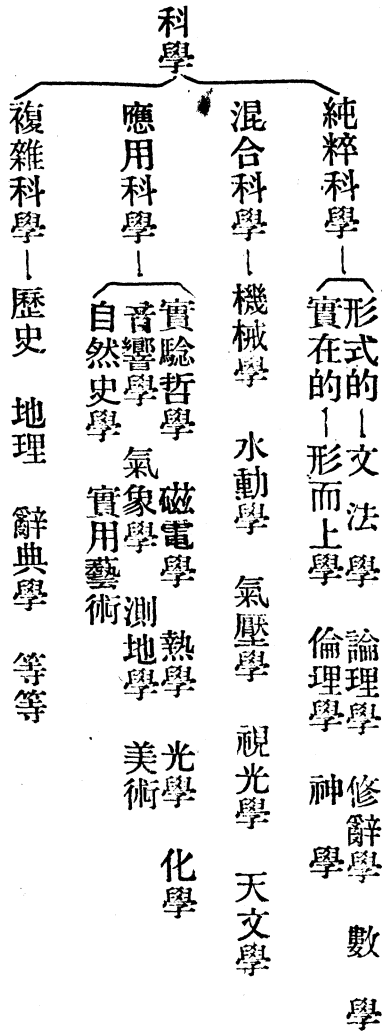 科學
純粹科學
形式的 文法學 論理學 修辭學 數學
實在的 形而上學 倫理學 神學
混合科學
機械學 水動學 氣壓學 視光學 天文學
應用科學
實驗哲學 磁電學 熱學 光學 化學
音響學 氣象學 測地學 美術
自然史學 實用藝術
複雜科學
歷史 地理 辭典學 等等